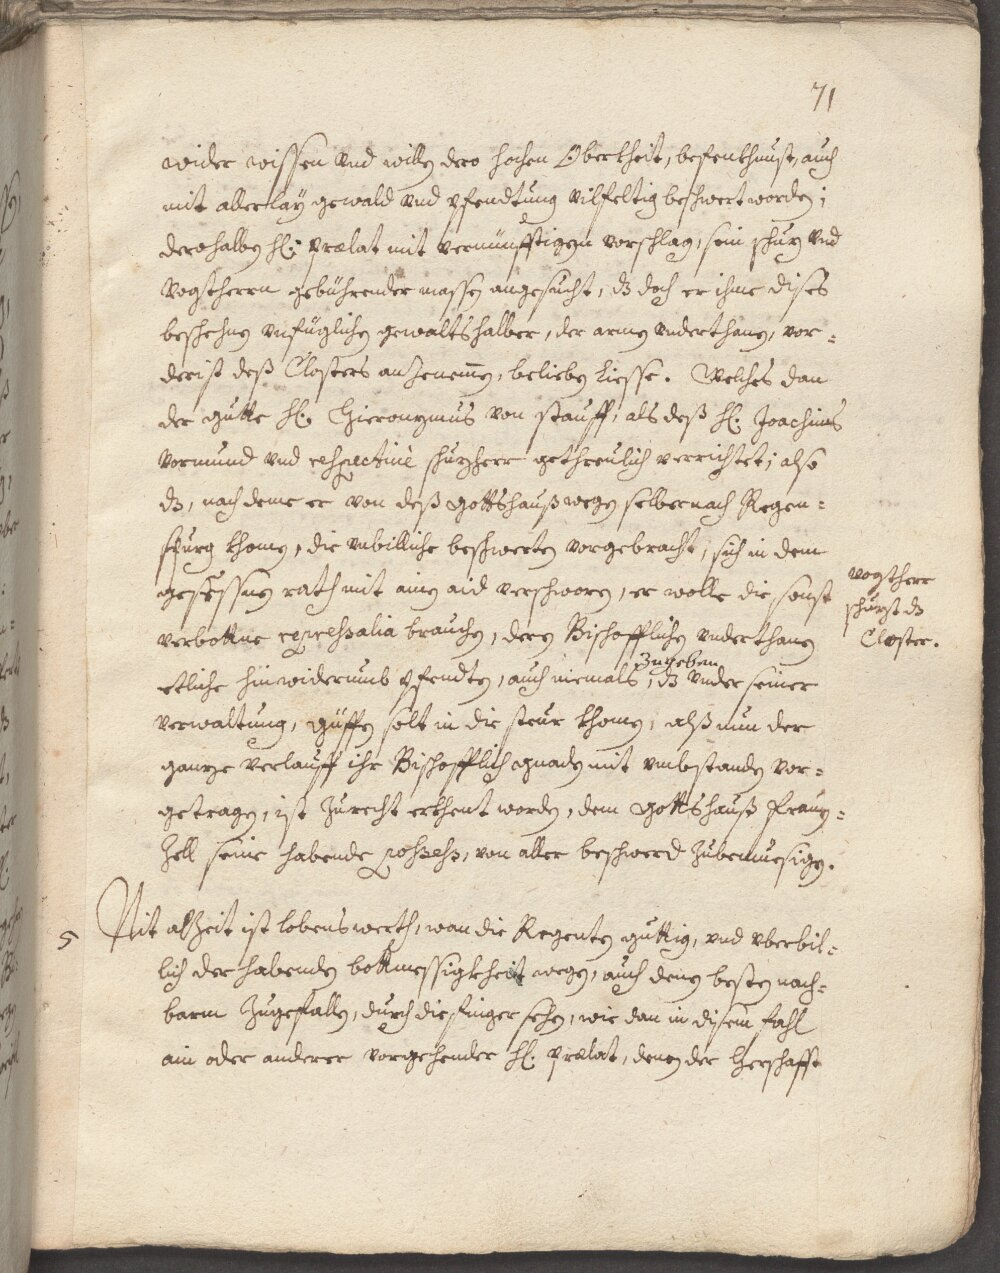 71
wider wissen und willen dero hochen Oberkheit, auch
mit allerlay gewald und pfendtung vilfeltig beschwert worden;
derohalben H: Prælat mit vernünfftigen vorschlag, sein schuz und
vogtherrn gebührender massen angesucht, dz doch er ihme dises
beschehnes unfüglichen gewalts halber, der armen underthanen, vor=
derist deß Closters anzenemen, belieben liesse. Welches dan
der gutte H: Hieronymus von Stauff, als deß H: Joachims
vormund und respective schuzherr gethreulich verrichtet; also
dz, nach deme er von deß Gottshauß wegen selber nach Regen=
spurg khomen, die unbilliche beschwerten vorgebracht, sich in dem
gesessnen rath mit ainem aid verschworen, er wolle die sonst
verbottne repressalia brauchen, deren Bischofflichen underthanen
etliche hinwiderumb pfendten, auch niemals zugeben, dz under seiner
verwaltung, solt in die steur khomen, alß nun der
ganze verlauff ihr Bischofflich gnaden mit umbstanden vor=
getragen, ist zurecht erkhent worden, dem Gottshauß Frauen=
zell seine habende possess, von aller beschwerd zubemüesigen.
vogtherr
schuzt dz
Closter.
5
Nit alzeit ist lobens werth, wan die Regenten guttig, und überbil=
lich der habenden bottmessigkheit wegen, auch denen besten nach=
barn zugefallen, durch die finger sehen, wie dan in disem fahl
ain oder anderer vorgehender H: Prælat, denen der Herschafft